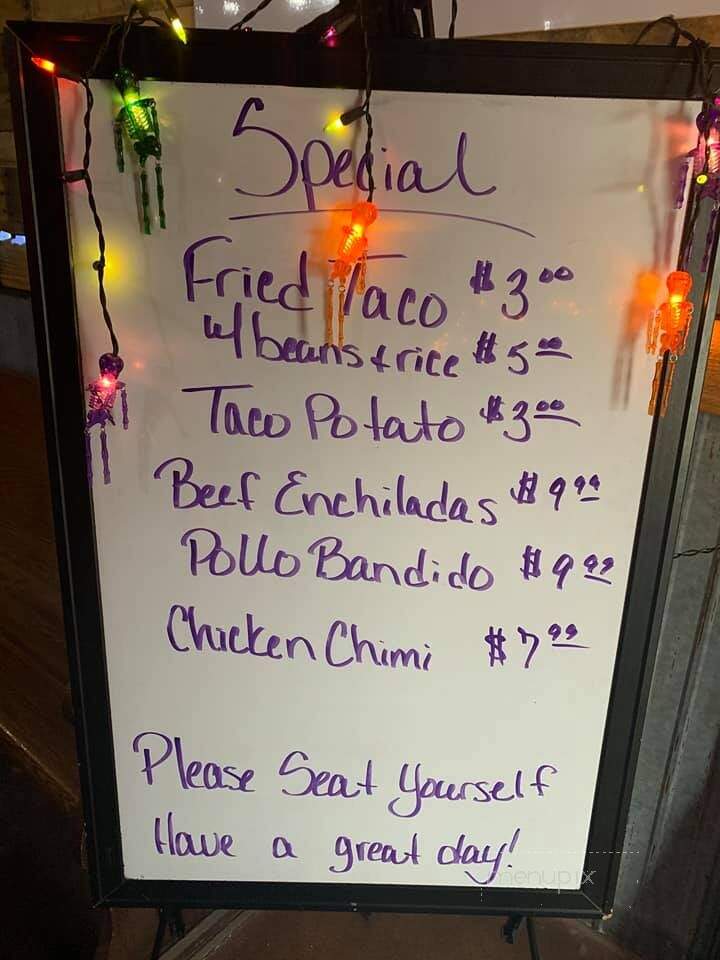 Special
Fried Taco $3.00
w/ beans + rice $5.00
Taco Potato $3.00
Beef Enchiladas $9.99
Pollo Bandido $9.99
Chicken Chimi $7.99
Please Seat Yourself
Have a great day!
menupix